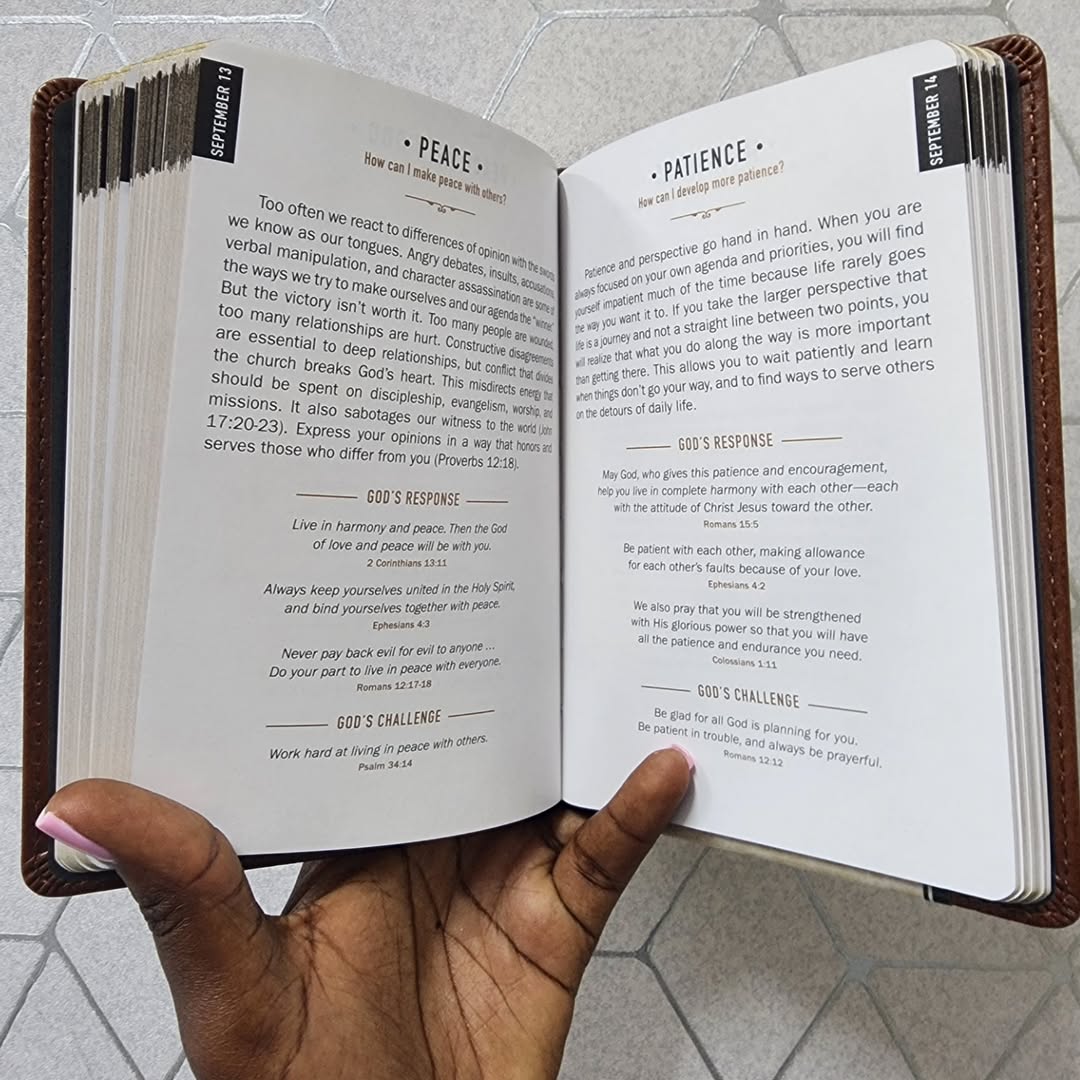 SEPTEMBER 13
• PEACE •
How can I make peace with others?
Too often we react to differences of opinion with the swords
we know as our tongues. Angry debates, insults, accusations,
verbal manipulation, and character assassination are some of
the ways we try to make ourselves and our agenda the "winner."
But the victory isn't worth it. Too many people are wounded,
too many relationships are hurt. Constructive disagreements
are essential to deep relationships, but conflict that divides
the church breaks God's heart. This misdirects energy that
should be spent on discipleship, evangelism, worship, and
missions. It also sabotages our witness to the world (John
17:20-23). Express your opinions in a way that honors and
serves those who differ from you (Proverbs 12:18).
GOD'S RESPONSE
Live in harmony and peace. Then the God
of love and peace will be with you.
2 Corinthians 13:11
Always keep yourselves united in the Holy Spirit,
and bind yourselves together with peace.
Ephesians 4:3
Never pay back evil for evil to anyone ...
Do your part to live in peace with everyone.
Romans 12:17-18
GOD'S CHALLENGE
Work hard at living in peace with others.
Psalm 34:14
SEPTEMBER 14
• PATIENCE •
How can I develop more patience?
Patience and perspective go hand in hand. When you are
always focused on your own agenda and priorities, you will find
yourself impatient much of the time because life rarely goes
the way you want it to. If you take the larger perspective that
life is a journey and not a straight line between two points, you
will realize that what you do along the way is more important
than getting there. This allows you to wait patiently and learn
when things don't go your way, and to find ways to serve others
on the detours of daily life.
GOD'S RESPONSE
May God, who gives this patience and encouragement,
help you live in complete harmony with each other—each
with the attitude of Christ Jesus toward the other.
Romans 15:5
Be patient with each other, making allowance
for each other's faults because of your love.
Ephesians 4:2
We also pray that you will be strengthened
with His glorious power so that you will have
all the patience and endurance you need.
Colossians 1:11
GOD'S CHALLENGE
Be glad for all God is planning for you.
Be patient in trouble, and always be prayerful.
Romans 12:12